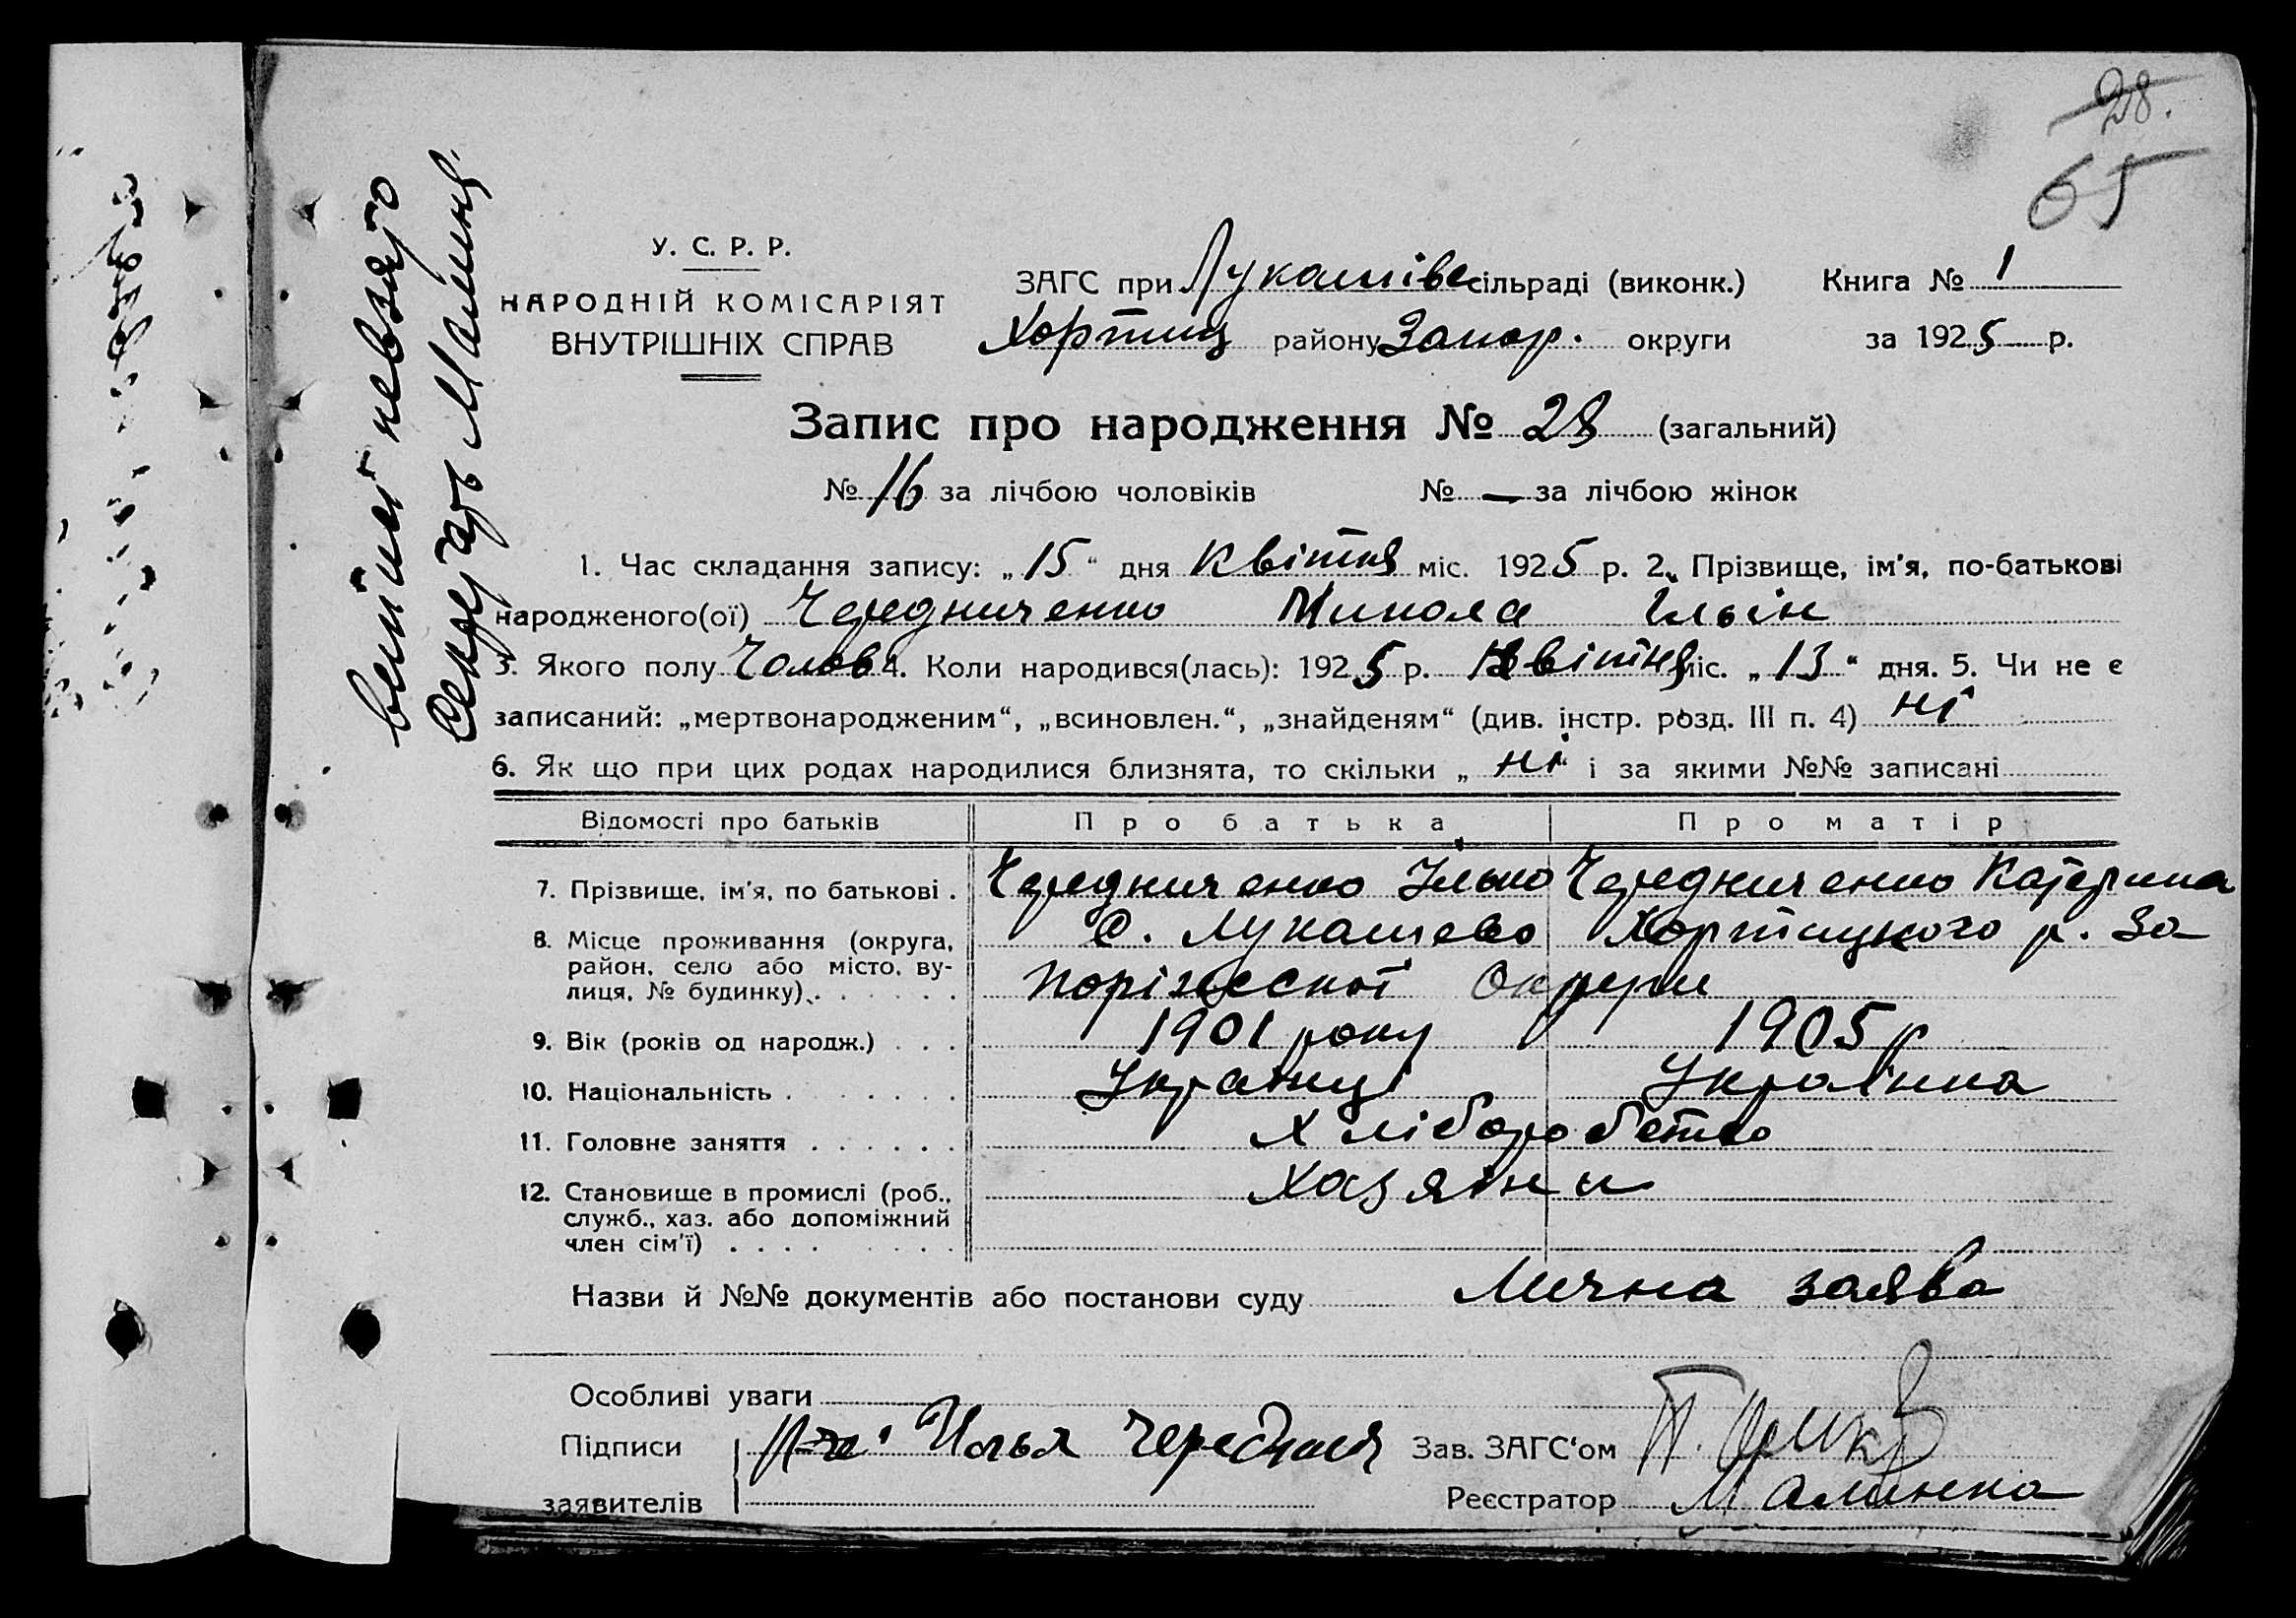 28.
65
У. С. Р. Р.
НАРОДНІЙ КОМІСАРІЯТ
ВНУТРІШНІХ СПРАВ
ЗАГС при Лукашівс сільраді (виконк.) Книга № 1
Хортиц району Запор. округи за 1925 р.
Запис про народження № 28 (загальний)
№ 16 за лічбою чоловіків № — за лічбою жінок
1. Час складання запису: „15“ дня Квітня міс. 1925 р. 2. Прізвище, ім'я, по-батькові
народженого(ої) Чередниченко Микола Ільїн
3. Якого полу Чолов 4. Коли народився(лась): 1925 р. Квітня міс. „13“ дня. 5. Чи не є
записаний: „мертвонародженим“, „всиновлен.“, „знайденям“ (див. інстр. розд. III п. 4) ні
6. Як що при цих родах народилися близнята, то скільки „ні“ і за якими №№ записані
Відомості про батьків Про батька Про матір
7. Прізвище, ім'я, по батькові . Чередниченко Ілько Чередниченко Катерина
8. Місце проживання (округа, С. Лукашево Хортицкого р. За-
район, село або місто, ву-
лиця, № будинку) порізьської Округи
9. Вік (років од народж.) 1901 року 1905 р
10. Національність Українці Українка
11. Головне заняття Хліборобство
12. Становище в промислі (роб., Хазяїни
служб., хаз. або допоміжний
член сім'ї)
Назви й №№ документів або постанови суду Лична заява
Особливі уваги
Підписи Илья Чередник Зав. ЗАГС'ом
заявителів Реєстратор Малинка
невзято
Секретарь Малинка